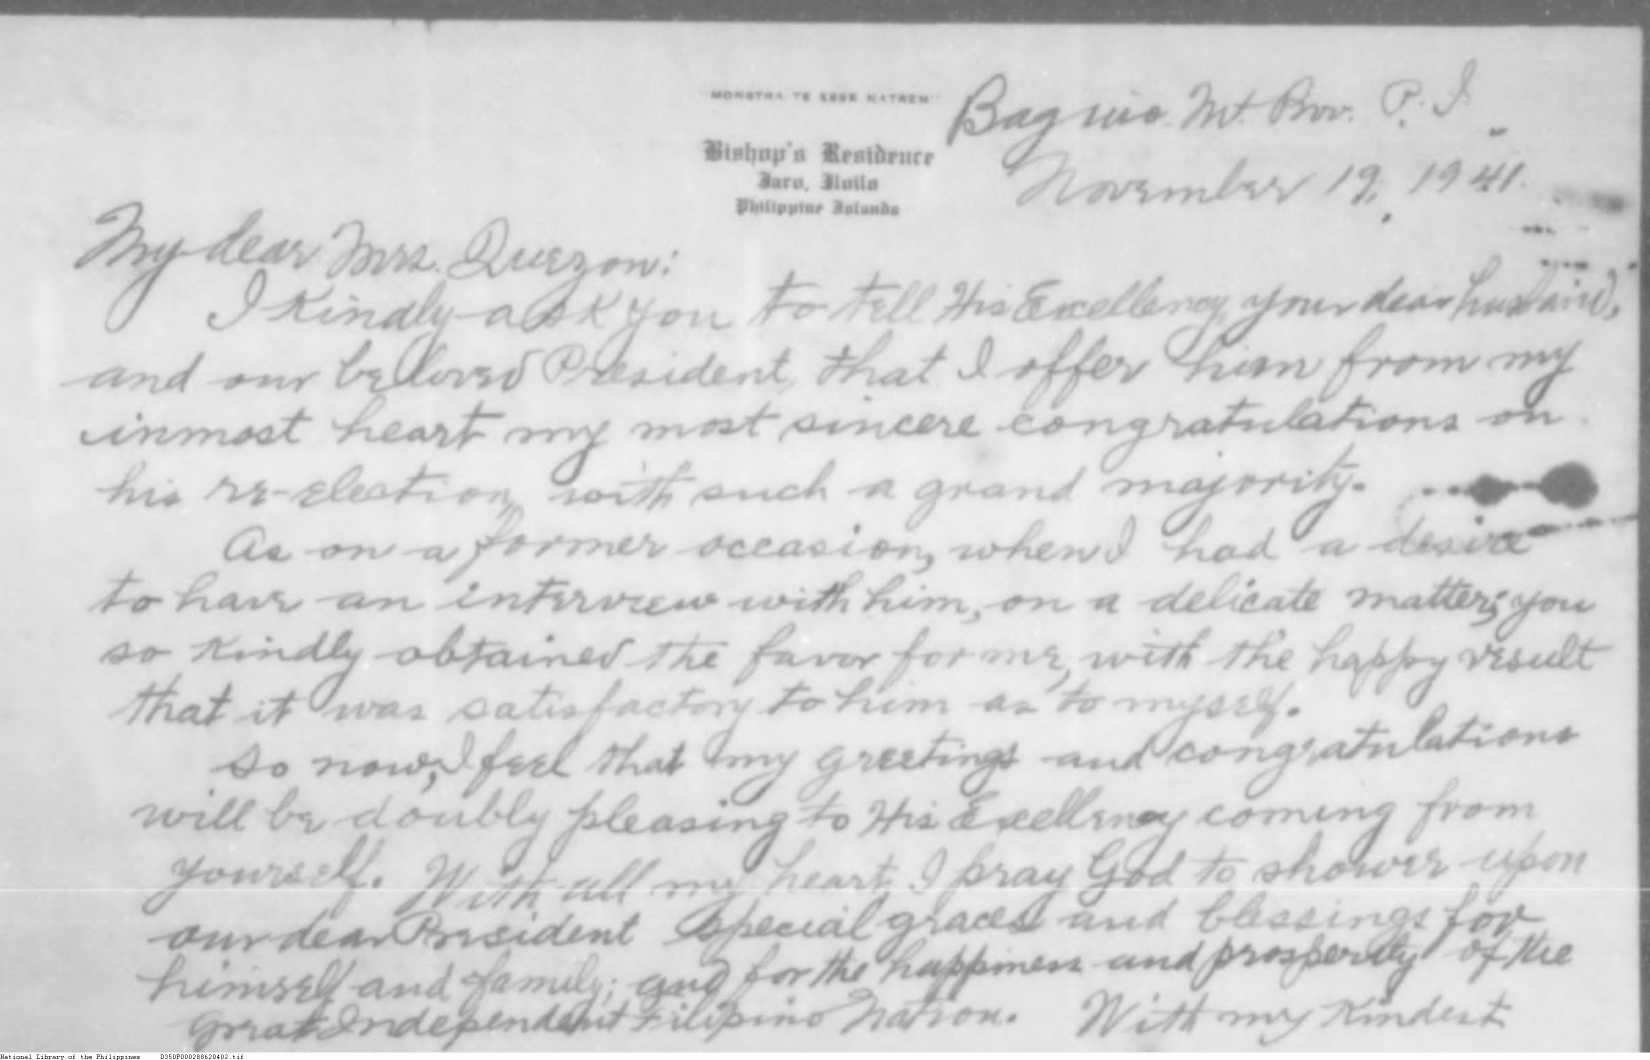 MONSTRA TE ESSE MATREM
Bishop's Residence
Jaro, Iloilo
Philippine Islands
Baguio. Mt. Prov. P. I.
November 19, 1941.
My dear Mrs. Quezon:
I kindly ask you to tell His Excellency, your dear husband,
and our beloved President, that I offer him from my
inmost heart my most sincere congratulations on
his re-election, with such a grand majority.
As on a former occasion, when I had a desire
to have an interview with him, on a delicate matter; you
so kindly obtained the favor for me, with the happy result
that it was satisfactory to him as to myself.
So now, I feel that my greetings and congratulations
will be doubly pleasing to His Excellency coming from
yourself. With all my heart I pray God to shower upon
our dear President special graces and blessings for
himself and family; and for the happiness and prosperity of the
great Independent Filipino Nation. With my kindest
National Library of the Philippines D350P000288620402.tif